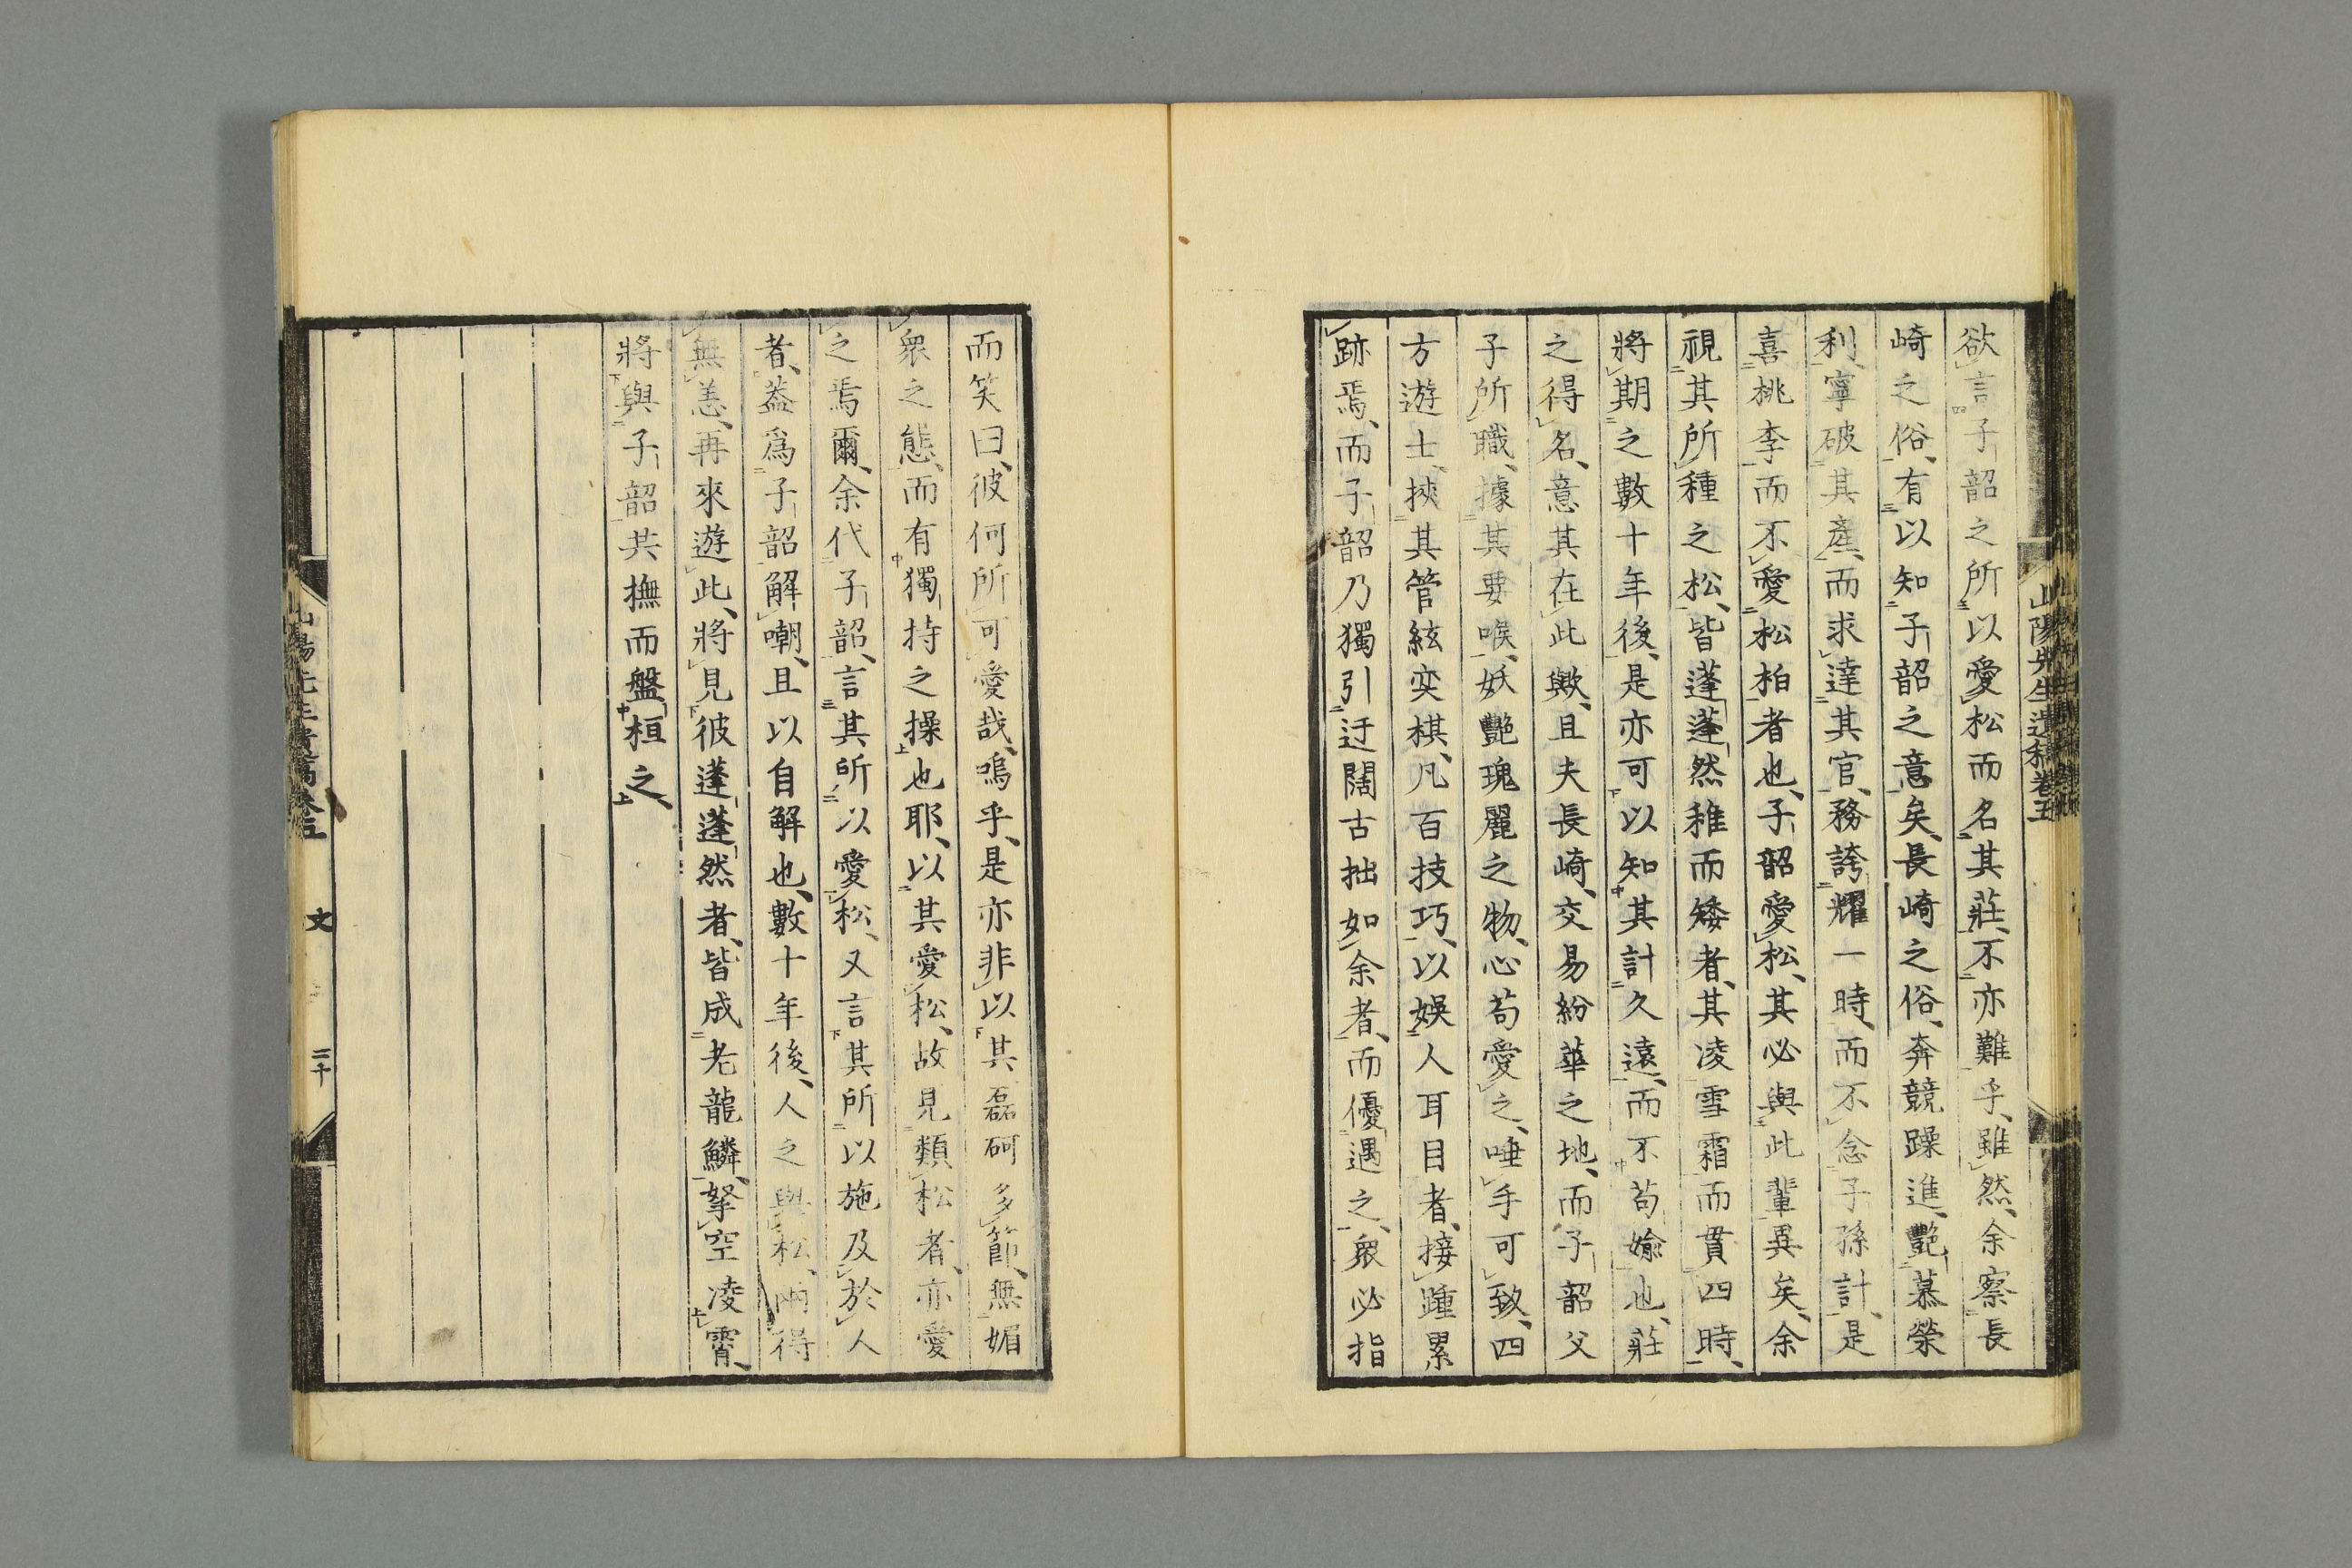 山陽先生遺稿卷五
欲言子韶之所以愛松而名其莊、不亦難乎、雖然、余察長
崎之俗、有以知子韶之意矣、長崎之俗、奔競躁進、艷慕榮
利、寧破其產、而求達其官、務誇耀一時、而不念子孫計、是
喜桃李而不愛松柏者也、子韶愛松、其必與此輩異矣、余
視其所種之松、皆蓬蓬然稚而矮者、其凌雪霜而貫四時、
將期之數十年後、是亦可以知其計久遠、而不苟婾也、莊
之得名、意其在此歟、且夫長崎、交易紛華之地、而子韶父
子所職、據其要喉、妖艷瑰麗之物、心苟愛之、唾手可致、四
方遊士、挾其管絃奕棋、凡百技巧、以娛人耳目者、接踵累
跡焉、而子韶乃獨引迂闊古拙如余者、而優遇之、衆必指
而笑曰、彼何所可愛哉、嗚乎、是亦非以其磊砢多節、無媚
衆之態、而有獨持之操也耶、以其愛松、故見類松者、亦愛
之焉爾、余代子韶、言其所以愛松、又言其所以施及於人
者、蓋爲子韶解嘲、且以自解也、數十年後、人之與松、兩得
無恙、再來遊此、將見彼蓬蓬然者、皆成老龍鱗、拏空凌霄、
將與子韶共撫而盤桓之、
文
二十